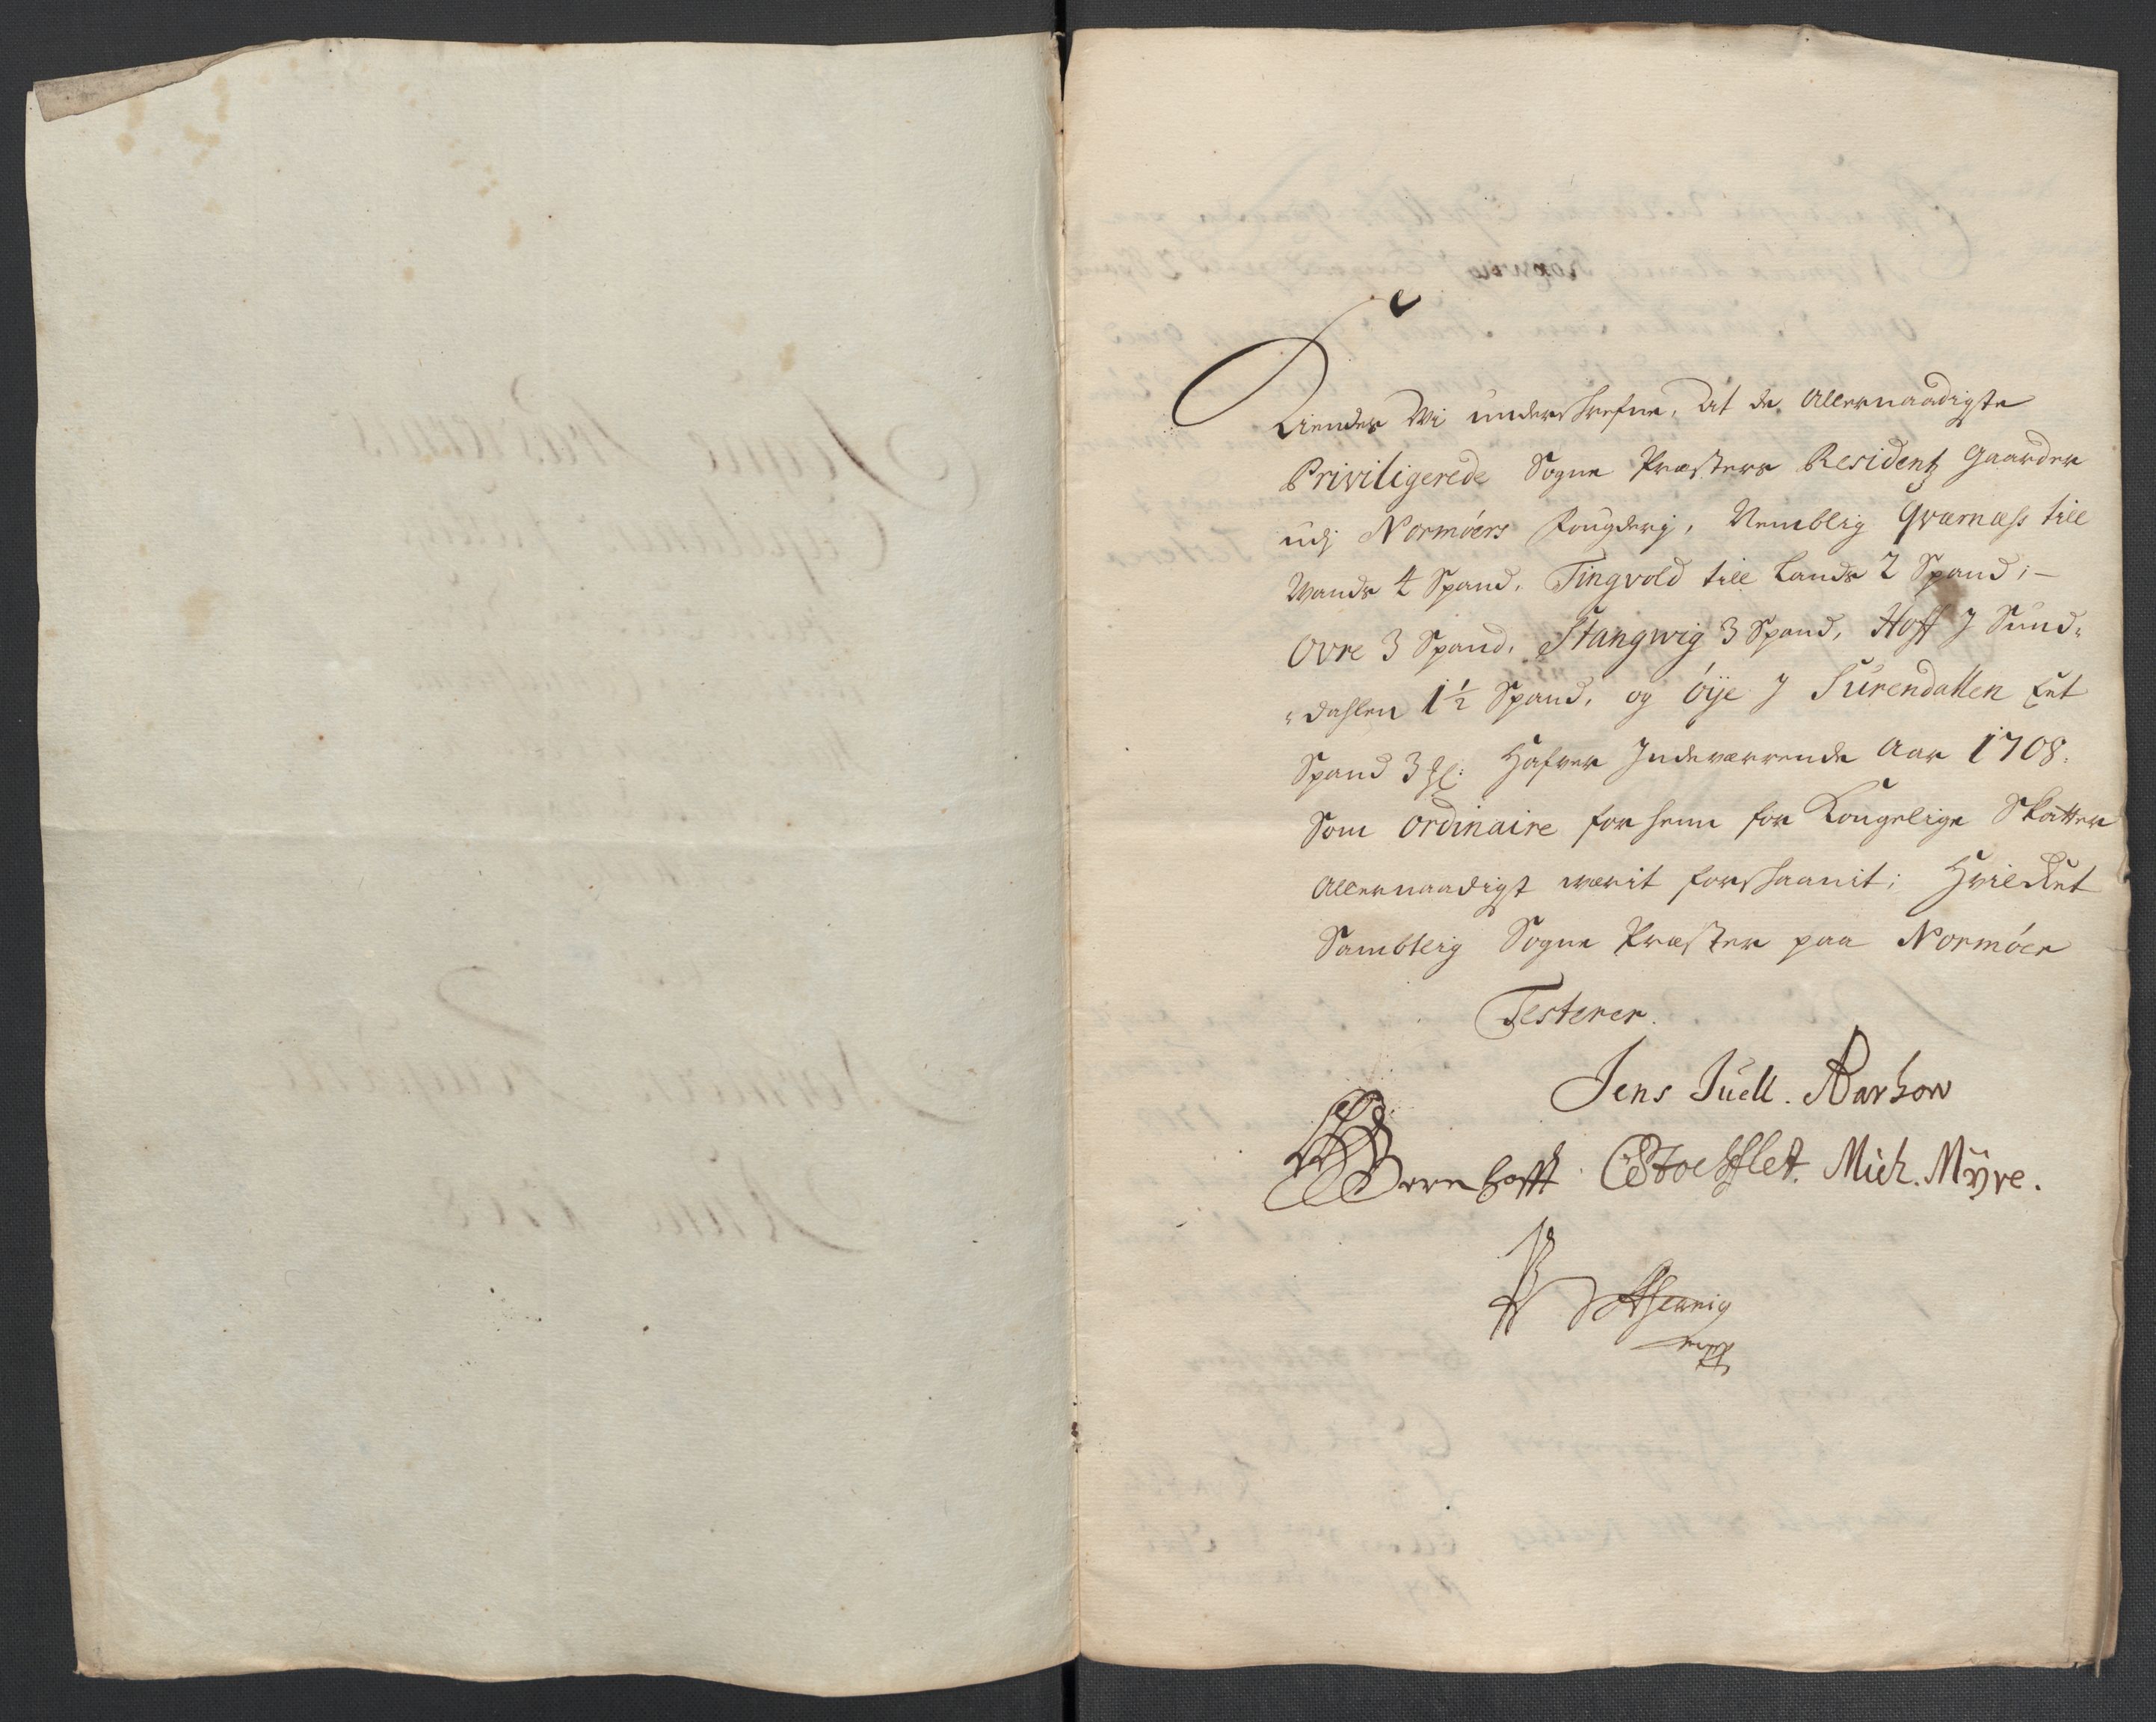 Kiender Wi underskrefne, At de Allernaadigste
Priviligerede Sogne Præsters Residentz Gaarder
udj Normóers Fougderj, Nemblig Qværnæss till
Wands 4 Spand, Tingvold till Lands 2 Spand;-
Ovre 3 Spand, Stangwig 3 Spand, Hoff J Sund-
-dahlen 1½ Spand, og óye J Surendallen Eet
Spand 3 Hafver Indeværrende Aar 1708.
Som ordinaire for henn for Kongelige Skatter
Allernaadigst værit forskaanit; Hvilcket
Samblig Sogne Præster paa Normóer
Testerer.
Jens Juell.
Mich. Mÿre.